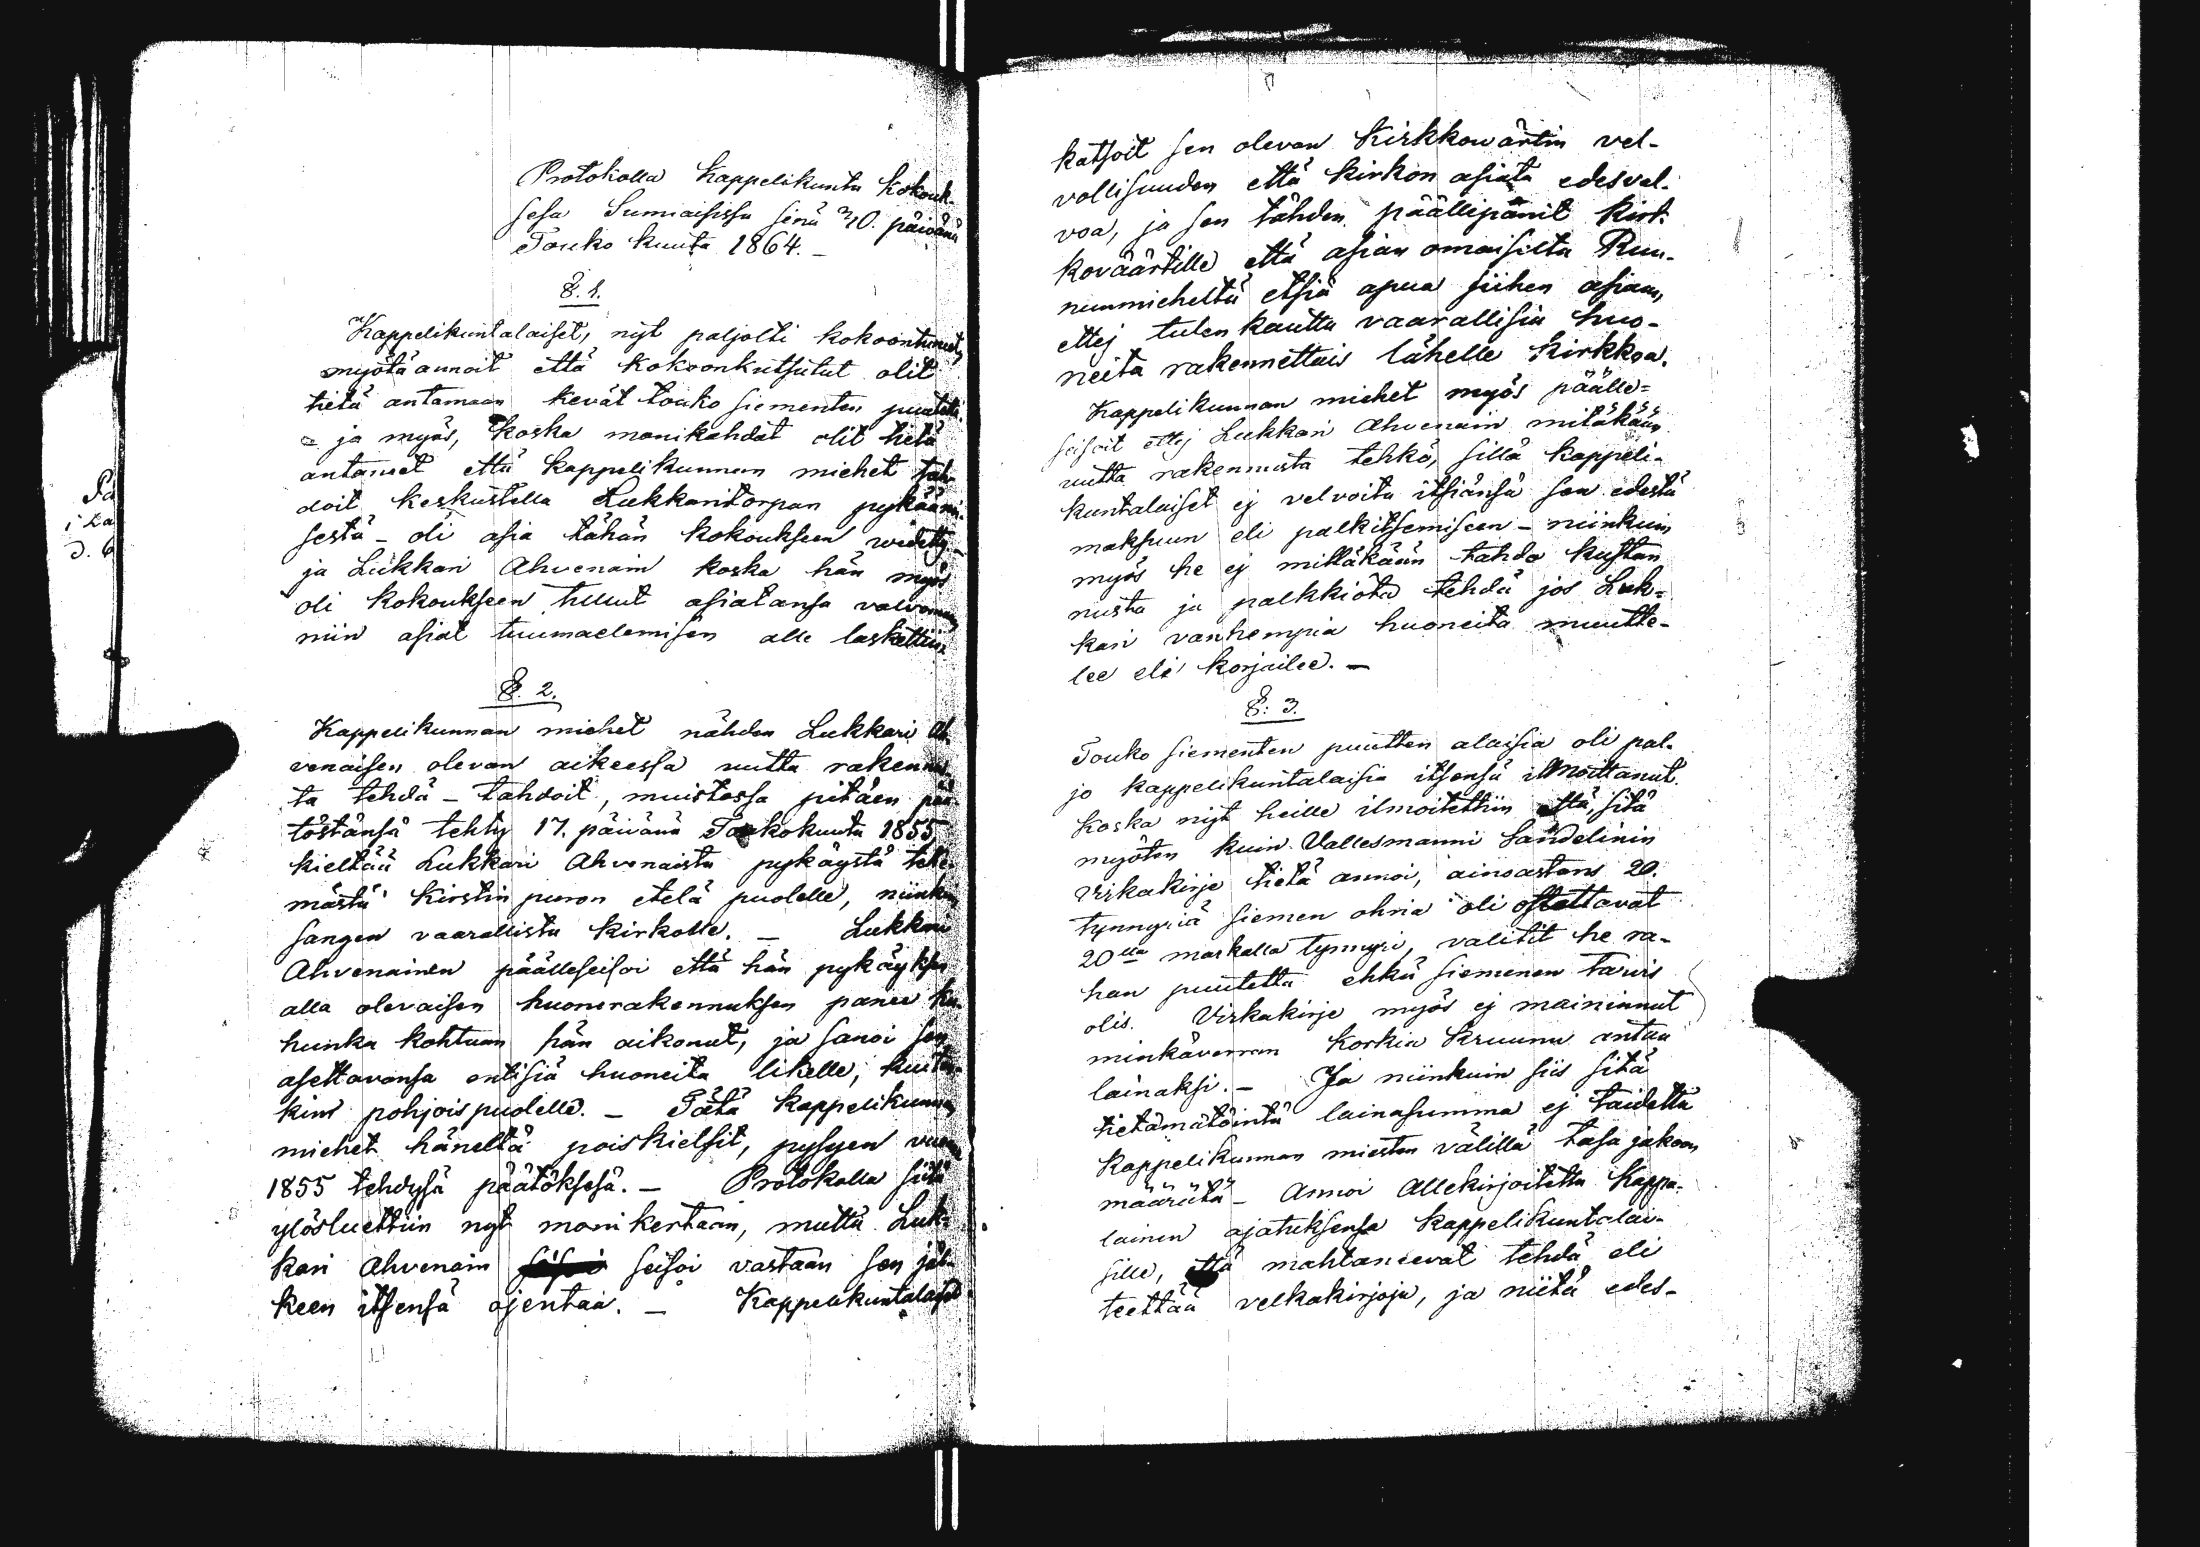 Protokolla Kappelikunta Kokouk-
sesa Sumiaisissa sinä 10. päivänä
Touko kuuta 1864. –
§. 1.
Kappelikuntalaiset, nyt paljolti kokoontunet,
myötä annoit että Kokoonkutsutut olit
tietä antamaan kevät touko siementen
ja myös, koska monikahdat olit tietä
antanet että kappelikunnan miehet tah-
doit keskustella Lukkaritorpan
sestä – oli asia tähän kokoukseen
ja Lukkari Ahvenain koska hän myös
oli kokoukseen tullut asiatansa valvoman
niin asiat tuumaelemisen alle laskettiin.
§. 2.
Kappelikunnan miehet nähden Lukkari Ah-
venaisen olevan aikeessa uutta rakennus-
ta tehdä – tahdoit, muistossa pitäen pää-
töstänsä tehty 17. päivänä Toukokuuta 1855
kieltää Lukkari Ahvenaista pykäystä teke-
mästä Kirstin puron etelä puolelle, niinkuin
sangen vaarallista Kirkolle. – Lukkari
Ahvenainen päälleseisoi että hän pykäyksen
alla olevaisen huonerakennuksen panee ku-
hunka kohtaan hän aikonut, ja sanoi sen
asettavansa entisiä huoneita likelle, kuiten-
kins pohjoispuolelle. – Tätä kappelikunnan
miehet häneltä poiskielsit, pysyen vuon
1855 tehdysä päätöksesä. – Protokolla siitä
ylösluettiin nyt monikertaan, mutta Luk-
kari Ahvenain seisoi vastaan sen jäl-
keen itsensä ojentaa. – Kappelikuntalaiset
katsoit sen olevan Kirkkowärtin vel-
vollisuuden että kirkon asiata edesval-
voa, ja sen tähden päällipanit Kirk-
koväärtille että asian omaisilta Ruu-
nunmieheltä etsiä apua siihen asiaan,
ettej tulen kautta vaarallisia huo-
neita rakennettais lähelle Kirkkoa.
Kappelikunnan miehet myös päälle-
seisoit ettej Lukkari Ahvenain mitäkään
uutta rakennusta tehkö, sillä kappeli-
kuntalaiset ej velvoita itsiänsä sen edestä
maksuun eli palkitsemiseen – niinkuin
myös he ej milläkään tahdo kustan-
nusta ja palkkiota tehdä jos Luk-
kari vanhempia huoneita muutte-
lee eli korjailee. –
§: 3.
Touko siementen puutten alaisia oli pal-
jo kappelikuntalaisia itsensä ilmoittanut.
Koska nyt heille ilmoitettiin että, sitä
myöten kuin Vallesmanni Sandelinin
Virkakirje tietä annoi, ainoastans 20.
tynnyriä siemen ohria oli ostettavat
20lla markalla tynnyri, valitit he ra-
han puutetta ehkä siemenen tarvis
olis. Virkakirje myös ej maininnut
minkäverran Korkia Kruunu antaa
lainaksi. – Ja niinkuin siis sitä
tietämätöintä lainasumma ej taidettu
Kappelikunnan miesten välillä tasa jakoon
määrätä – Annoi Allekirjoitettu Kappa-
lainen ajatuksensa kappelikuntalai-
sille, että mahtaneevat tehdä eli
teettää velkakirjoja, ja niitä edes-